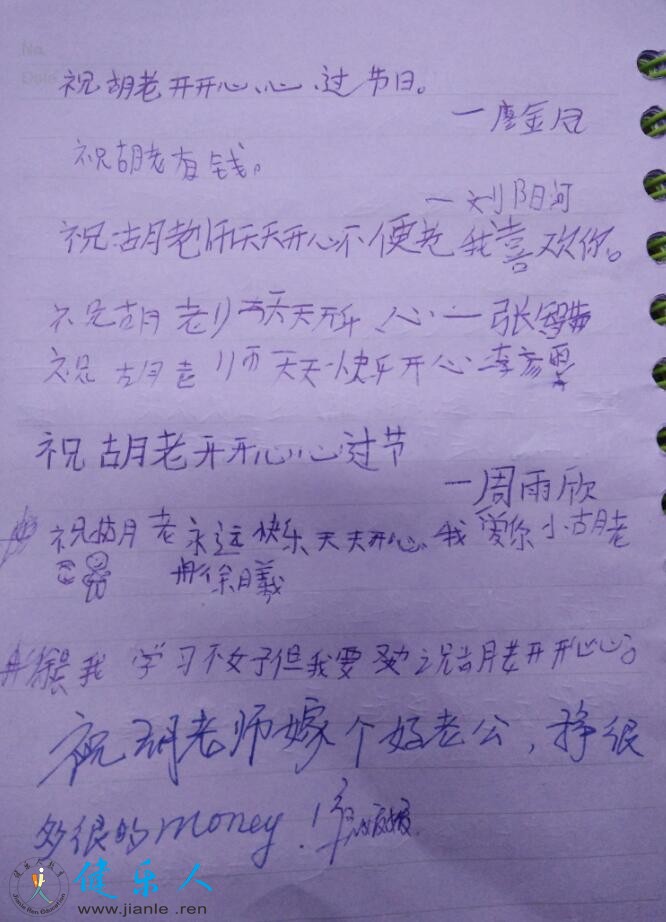 No.
Date
祝胡老开开心心过节日。
—廖金冠
祝胡老有钱。
—刘阳河
祝胡老师天天开心不便老我喜欢你。
祝胡老师天天开心—张
祝胡老师天天快乐开心李彦
祝胡老开开心心过节
—周雨欣
祝胡老永远快乐天天开心我爱你小胡老
徐曦
我学习不好但我要祝胡老开开心心。
祝胡老师嫁个好老公,挣很
多很的money!
健乐人
www.jianle.ren